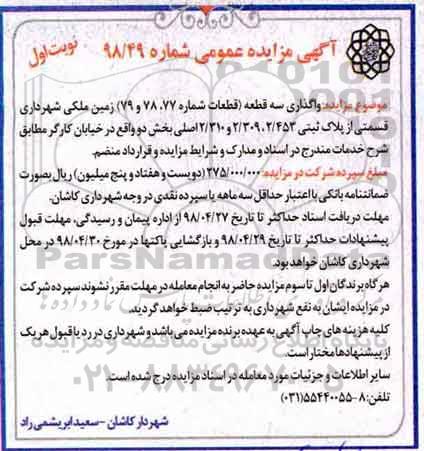 آگهی مزایده عمومی شماره ۹۸/۴۹
نوبت اول
موضوع مزایده: واگذاری سه قطعه (قطعات شماره ۷۷، ۷۸ و ۷۹) زمین ملکی شهرداری
قسمتی از پلاک ثبتی ۲/۴۵۳، ۲/۳۰۹ و ۲/۳۱۰ اصلی بخش دو واقع در خیابان کارگر مطابق
شرح خدمات مندرج در اسناد و مدارک و شرایط مزایده و قرارداد منضم.
مبلغ سپرده شرکت در مزایده: ۲۷۵/۰۰۰/۰۰۰ (دویست و هفتاد و پنج میلیون) ریال بصورت
ضمانتنامه بانکی با اعتبار حداقل سه ماهه یا سپرده نقدی در وجه شهرداری کاشان.
مهلت دریافت اسناد حداکثر تا تاریخ ۹۸/۰۴/۲۷ از اداره پیمان و رسیدگی، مهلت قبول
پیشنهادات حداکثر تا تاریخ ۹۸/۰۴/۲۹ و بازگشایی پاکتها در مورخ ۹۸/۰۴/۳۰ در محل
شهرداری کاشان خواهد بود.
هر گاه برندگان اول تا سوم مزایده حاضر به انجام معامله در مهلت مقرر نشوند سپرده شرکت
در مزایده ایشان به نفع شهرداری به ترتیب ضبط خواهد گردید.
کلیه هزینه های چاپ آگهی به عهده برنده مزایده می باشد و شهرداری در رد یا قبول هر یک
از پیشنهادها مختار است.
سایر اطلاعات و جزئیات مورد معامله در اسناد مزایده درج شده است.
تلفن: ۸-۵۵۴۴۰۰۵۵ (۰۳۱)
شهردار کاشان - سعید ابریشمی راد
ParsNamadData
پایگاه اطلاع رسانی مناقصه و مزایده